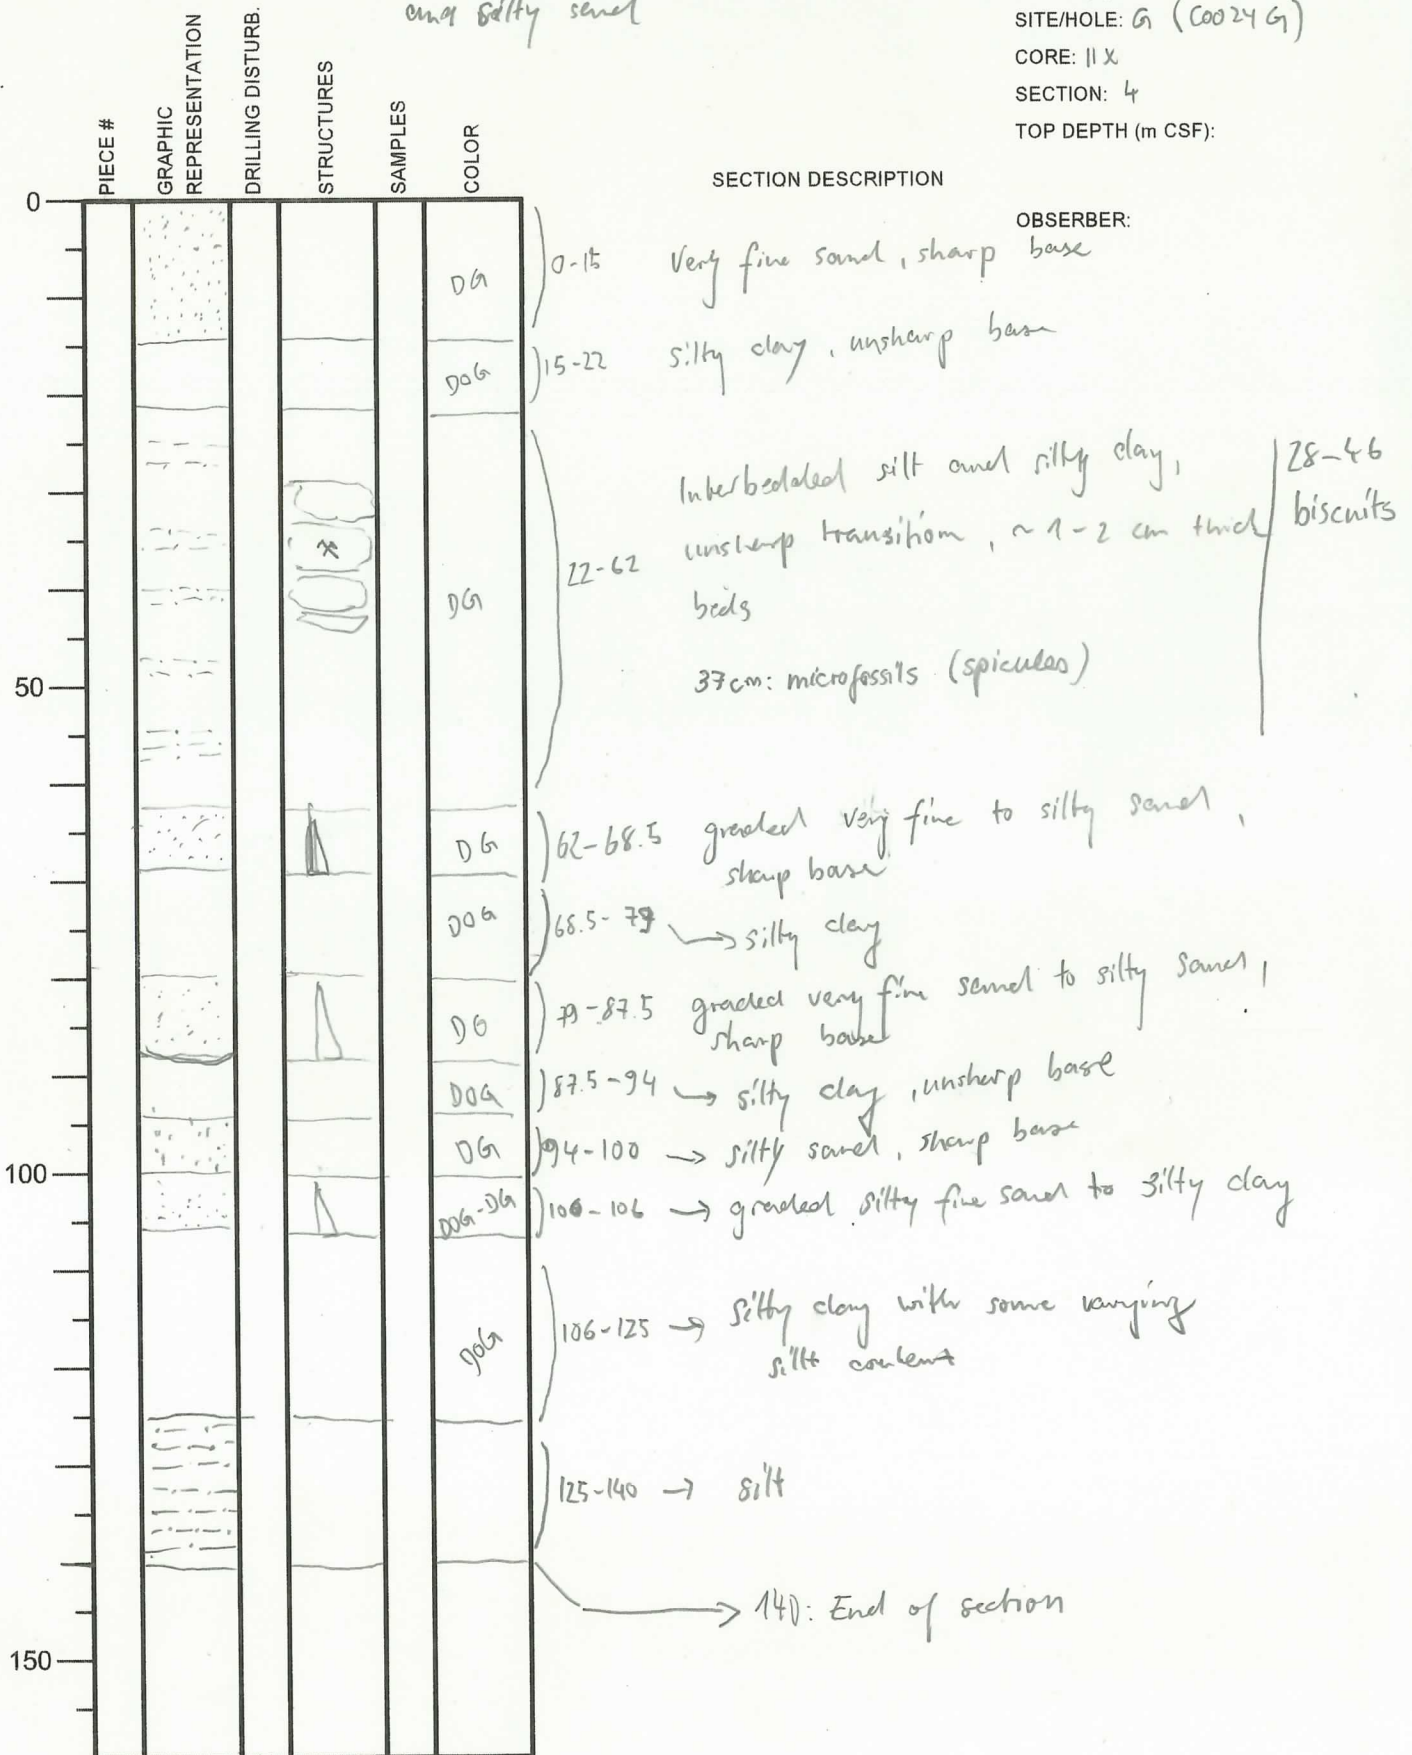 and silty sand
SITE/HOLE: G (C0024G)
CORE: 11X
SECTION: 4
TOP DEPTH (m CSF):
PIECE #
GRAPHIC
REPRESENTATION
DRILLING DISTURB.
STRUCTURES
SAMPLES
COLOR
SECTION DESCRIPTION
OBSERBER:
0
DG
0-15 Very fine sand, sharp base
DOG
15-22 silty clay, unsharp base
Interbedded silt and silty clay,
28-46
unsharp transition, ~1-2 cm thick
biscuits
22-62
DG
beds
37cm: microfossils (spicules)
50
DG
62-68.5 graded very fine to silty sand,
sharp base
DOG
68.5-79 → silty clay
DG
79-87.5 graded very fine sand to silty sand,
sharp base
DOG
87.5-94 → silty clay, unsharp base
DG
94-100 → silty sand, sharp base
100
DOG-DG
100-106 → graded silty fine sand to silty clay
DOG
106-125 → Silty clay with some varying
silt content
125-140 → silt
→ 140: End of section
150